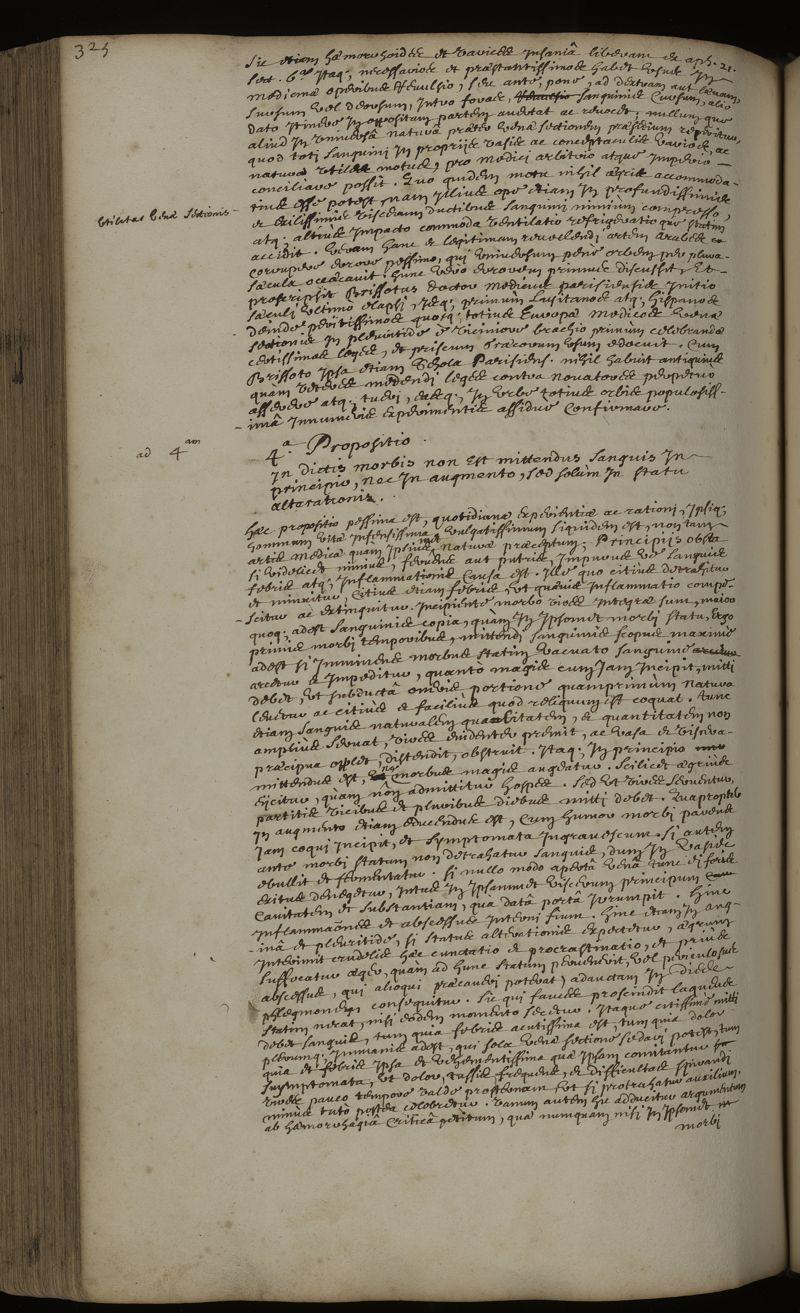 325
Sic etiam hæmorrhoides et varices Insaniâ liberant ex aph. 21.
sect. 6.ae Itaq; necessarios et præstantissimos habet usus In
medicinæ operibus Revulsio, seu ante, pone, ad dextram aut lævam,
sursum vel deorsum, Intro foras, sanguinis cursum, alio
dato Itinere In oppositam partem avertat ac revocet, nullum quo
aliud In universâ naturâ præter venæ sectionem præsidium reperitur,
quod toti sanguini In proprijs vasis ac conceptaculis varios, ac
naturæ utiles motus, pro medici arbitrio atque Imperio
conciliare possit. Quo quidem motu nihil ægris accommoda-
tius esse potest nam Illius ope etiam In profundissimis
et exilissimis viscerum ductibus sanguini nimium compresso,
atq; altius Impacto commoda ventilatio refrigeratio que statim
accidit. veram hanc et legitimam revellendi artem Arabes
corrupere errore pessimo, qui universum pene orbem per plura
sæcula occæcavit. hunc vero errorem primus discussit, Et
proscripsit Brissotus doctor medicus parisiensis Initio
sæculi ultimo elapsi, Isq; primum Lusitanos atq; Hispanos
deinde peritissimos quosq; totius Europæ medicos venæ
sectionis In pleuritide è viciniore brachio primum celebrandæ
certissimas leges, et priscum Græcorum usum edocuit. Cum
Brissoto Ipsa etiam Schola Parisiens. nihil habuit antiquius
quam veteres medendi leges contra novatores perpetuo
asserere atq; tueri, easq; In urbe totius orbis populosiss-
imâ Innumeris experimentis assidue confirmare.
Utilitas venæ sectionis
ad 4am
4.a Propositio.
In dictis morbis non est mittendus sanguis In
principio, nec In augmento, sed solum In statu
alterationis.
Hæc propositio pessima est, quotidianæ experientiæ ac rationi, Ipsiq;
hominum vitæ Infensissima, vulgatissimum siquidem est, non tam
artis medicæ quam Ipsiusmet naturæ præceptum; Principiis obsta
si videlicet nimius, fervens aut putris, Impurus ve sanguis
febris atq; Inflammationis causa est. Ille quo citius detrahitur
et minuitur, citius etiam febris, et quævis Inflammatio compe-
scitur ac extinguitur. Incipiente morbo vires Integræ sunt, maior
quoq; adest sanguinis copia, quam In Ipsomet morbi statu, Ergo
primis morbi temporibus, mittendi sanguinis scopus maxime
adest si Imminens morbus statim vacuato sanguine
arcetur et Impeditur, quanto magis cum Iam Incipit, mitti
debet, ut subductâ oneris portione quamprimùm natura
levetur ac citius et facilius quod reliquum est coquat. tunc
etiam sanguis naturalem qualitatem, et quantitatem non
amplius servat, vires evidenter premit, ac vasa et viscera
præcipua opplet, distendit, obstruit. Itaq; In principio
mittendus est, ne morbus magis augeatur. Scilicet ægrius
eijcitur, quàm non admittitur hospes. Sed ut vires serventur,
partitis vicibus et pluribus diebus mitti debet. Quapropter
In augmento etiam educendus est, cum humor morbi parens
Iam coqui Incipit, et symptomata Ingravescunt. si autem
ante morbi statum non detrahatur sanguis, dum In vasis
ebullit et fermentatur. si nullo modo apertâ venâ tunc ei foras
exitus denegetur, intus In Ipsammet viscerum principum
cavitatem et substantiam, qua data portâ Irrumpit. Hinc
Inflammationes et abscessus Interni fiunt. Hinc etiam In ang-
inâ et pleuritide, si status alterationis expectetur, ægrum
Interimit crudelis hæc cunctatio et procrastinatio, et prius
suffocatur æger, quam ad hunc statum pervenerit, vel periculosus
abscessus, qui alioqui præcaveri poterat, adauctam In dies
phlegmonem consequitur. Sic qui fauces proscindit laqueus
statim necat, nisi eodem momento secetur. Itaque citissime mitti
debet sanguis, tum quia febris acutissima est, tum quia dolor
plerumq; Immanis adest, qui sola venæ sectione sedari potest, tum
quia et febris Ipsa et vehementissima quæ Ipsam comitantur
symptomata, ut dolor, tussis frequens, et difficultas spirandi
vires pauco tempore valde prosternunt ut si protrahatur auxilium,
minus tuto postea celebretur. vanum autem hic adducitur argumentum
ab hæmorrhagiâ criticâ petitum, quæ numquam nisi In Ipsomet
morbi